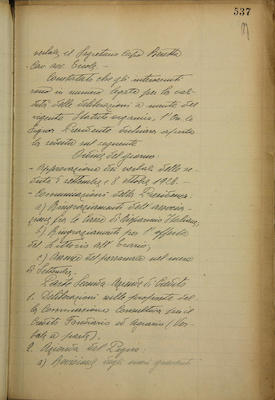 537
verbale, il Segretario Capo Binetti
Cav. avv. Ercole.
Constatato che gli intervenuti
sono in numero legale per la vali-
dità delle deliberazioni a mente del
vigente Statuto organico, l'On.le
Signor Presidente dichiara aperta
la seduta sul seguente
Ordine del giorno
- Approvazione dei verbali delle se-
dute 5 settembre e 8 ottobre 1928.-
- Comunicazioni della Presidenza:
a) Ringraziamenti dell'Associa-
zione per le Casse di Risparmio Italiane;
b) Ringraziamenti per l'offerta
del Littorio all'Erario;
c) Assenze del personale nel mese
di Settembre.
Parte Seconda - Azienda di Credito
1. Deliberazioni sulle proposte del-
la Commissione Consultiva per il
Credito Fondiario ed Agrario (Ver-
bale a parte).
2. Agenzia del Regno:
a) Revisione degli orari